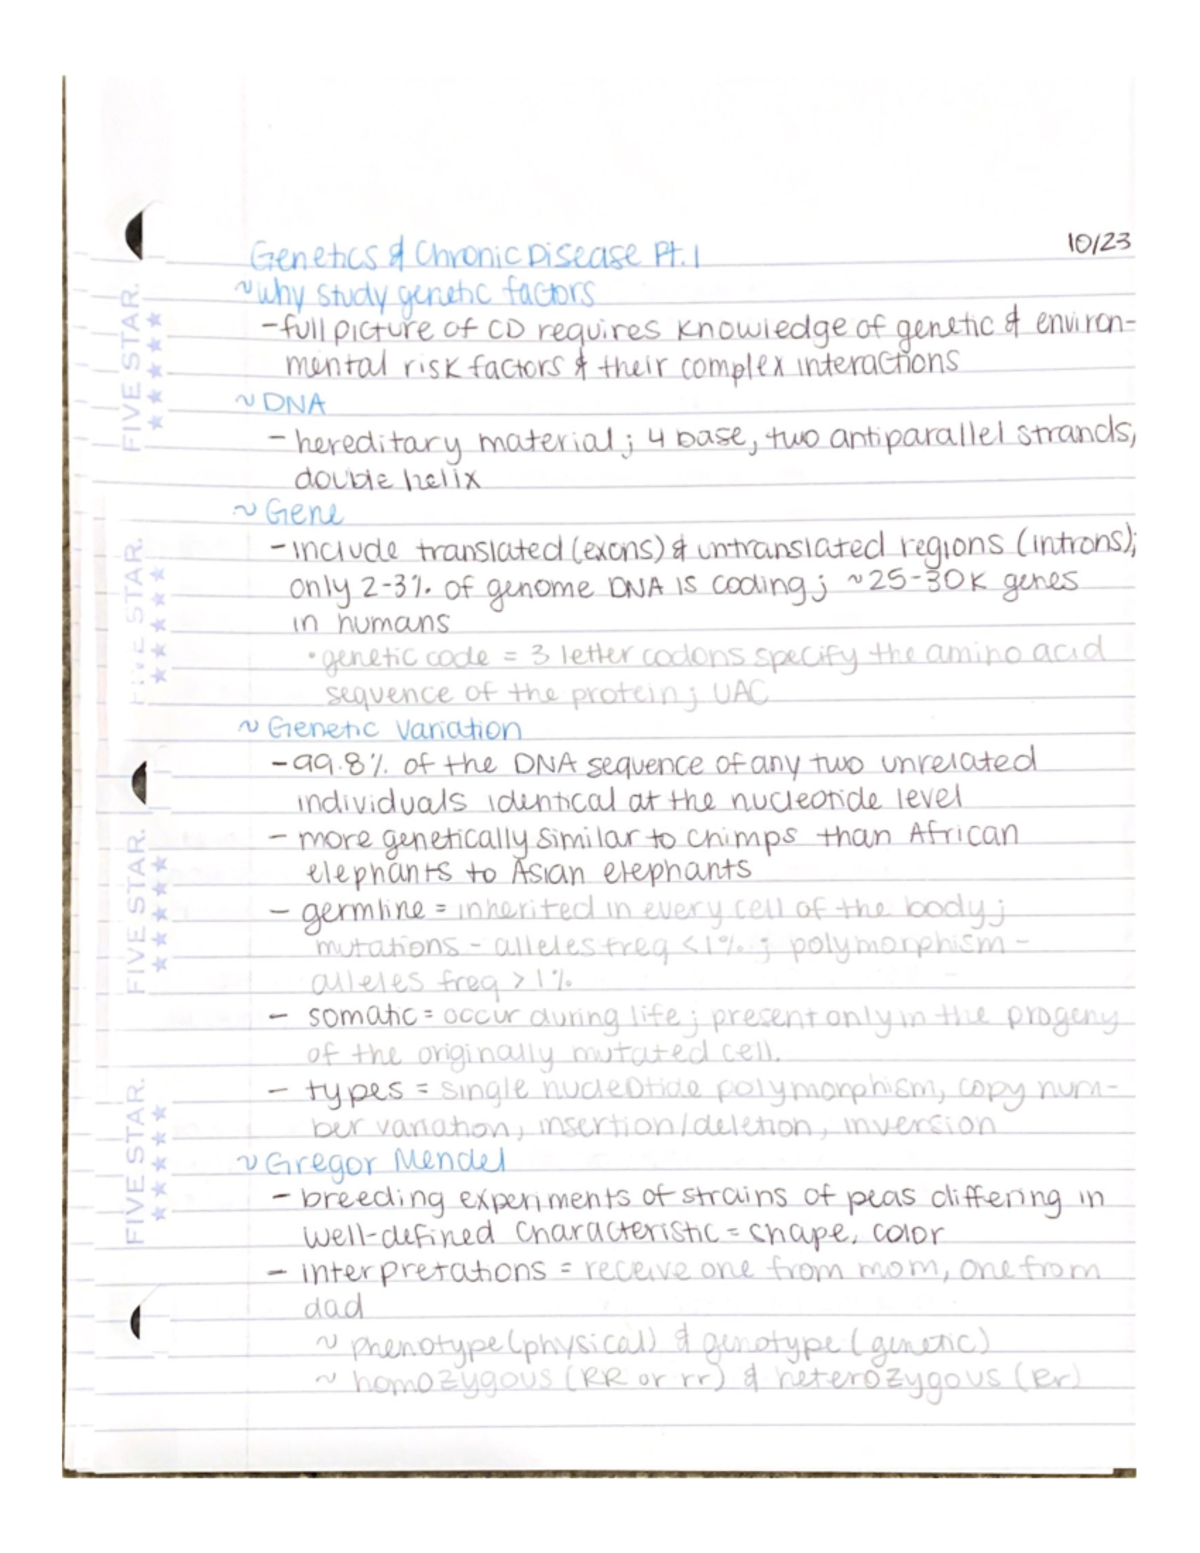 10/23
Genetics & Chronic Disease Pt. 1
~ Why study genetic factors
- full picture of CD requires knowledge of genetic & environ-
mental risk factors & their complex interactions
~ DNA
- hereditary material; 4 base, two antiparallel strands,
double helix
~ Gene
- include translated (exons) & untranslated regions (introns);
only 2-3% of genome DNA is coding; ~25-30K genes
in humans
• genetic code = 3 letter codons specify the amino acid
sequence of the protein; UAC
~ Genetic Variation
- 99.8% of the DNA sequence of any two unrelated
individuals identical at the nucleotide level
- more genetically similar to chimps than African
elephants to Asian elephants
- germline = inherited in every cell of the body;
mutations - alleles freq <1%; polymorphism -
alleles freq >1%
- somatic = occur during life; present only in the progeny
of the originally mutated cell.
- types = single nucleotide polymorphism, copy num-
ber variation, insertion/deletion, inversion
~ Gregor Mendel
- breeding experiments of strains of peas differing in
well-defined characteristic = shape, color
- interpretations = receive one from mom, one from
dad
~ phenotype (physical) & genotype (genetic)
~ homozygous (RR or rr) & heterozygous (Rr)
FIVE STAR.
FIVE STAR.
FIVE STAR.
FIVE STAR.